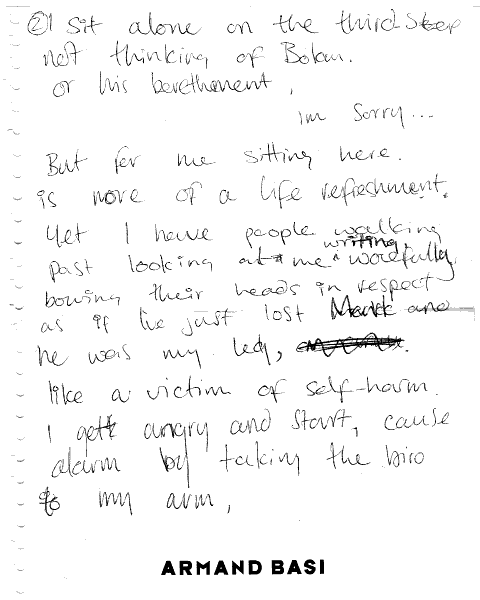 ② I sit alone on the third step
not thinking of Bolan.
or his berethement,
im sorry...
But for me sitting here.
is more of a life refreshment.
Yet I have people walking
past looking at me writing, woefully,
bowing their heads in respect
as if I've just lost Mark and
he was my leg,
like a victim of self-harm.
I get angry and start, cause
alarm by taking the biro
to my arm,
ARMAND BASI